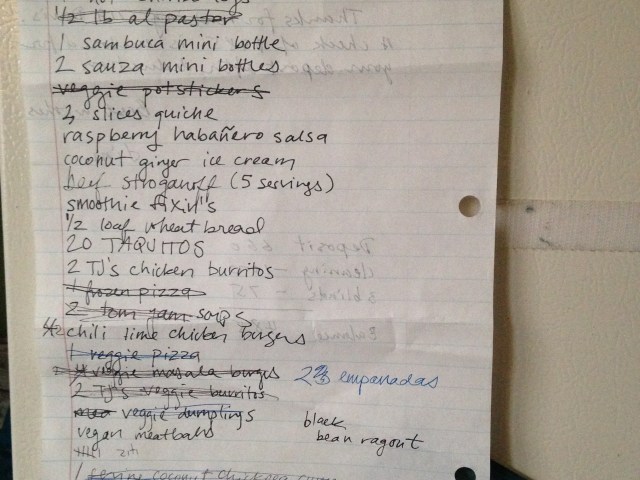 1/2 lb al pastor
1 sambuca mini bottle
2 sauza mini bottles
veggie potstickers
slices quiche
raspberry habañero salsa
coconut ginger ice cream
beef stroganoff (5 servings)
smoothie fixin's
1/2 loaf wheat bread
20 TAQUITOS
2 TJ's chicken burritos
1 frozen pizza
2 tom yum soups
chili lime chicken burgers
1 veggie pizza
veggie masala burgers
2 TJ's veggie burritos
2 empanadas
veggie dumplings
vegan meatballs
black
bean ragout